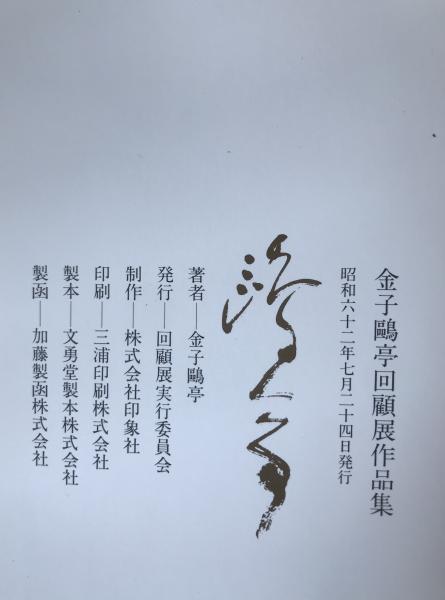 金子鷗亭回顧展作品集
昭和六十二年七月二十四日発行
著者──金子鷗亭
発行──回顧展実行委員会
制作──株式会社印象社
印刷──三浦印刷株式会社
製本──文勇堂製本株式会社
製函──加藤製函株式会社